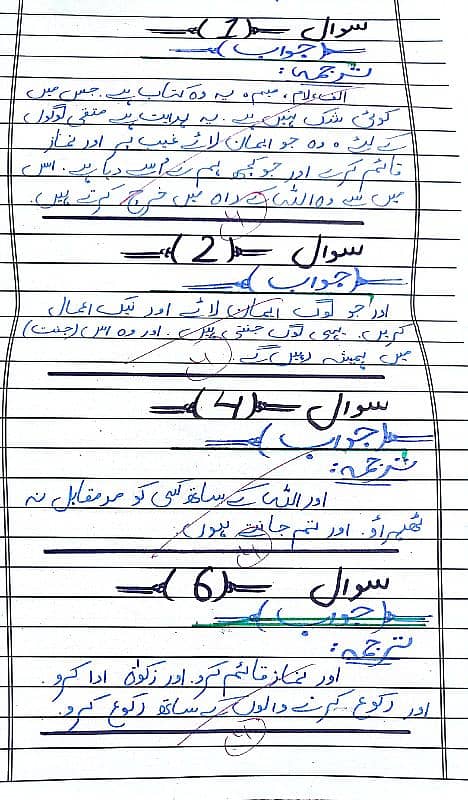 سوال (1)
(جواب)
ترجمہ:
الف، لام، میم، یہ وہ کتاب ہے جس میں
کوئی شک نہیں ہے۔ یہ ہدایت ہے متقی لوگوں
کے لئے ۔ وہ جو ایمان لائے غیب پر اور نماز
قائم کرے اور جو کچھ ہم نے اسے دیا ہے۔ اس
میں سے وہ اللہ کے راہ میں خرچ کرتے ہیں
سوال (2)
(جواب)
اور جو لوگ ایمان لائے اور نیک اعمال
کریں۔ یہی لوگ جنتی ہیں۔ اور وہ اس (جنت)
میں ہمیشہ رہیں گے۔
سوال (4)
(جواب)
ترجمہ:
اور اللہ کے ساتھ کسی کو مدمقابل نہ
ٹھہراؤ۔ اور تم جانتے ہوں۔
سوال (6)
(جواب)
ترجمہ:
اور نماز قائم کرو۔ اور زکوٰۃ ادا کرو۔
اور رکوع کرنے والوں کے ساتھ رکوع کرو۔